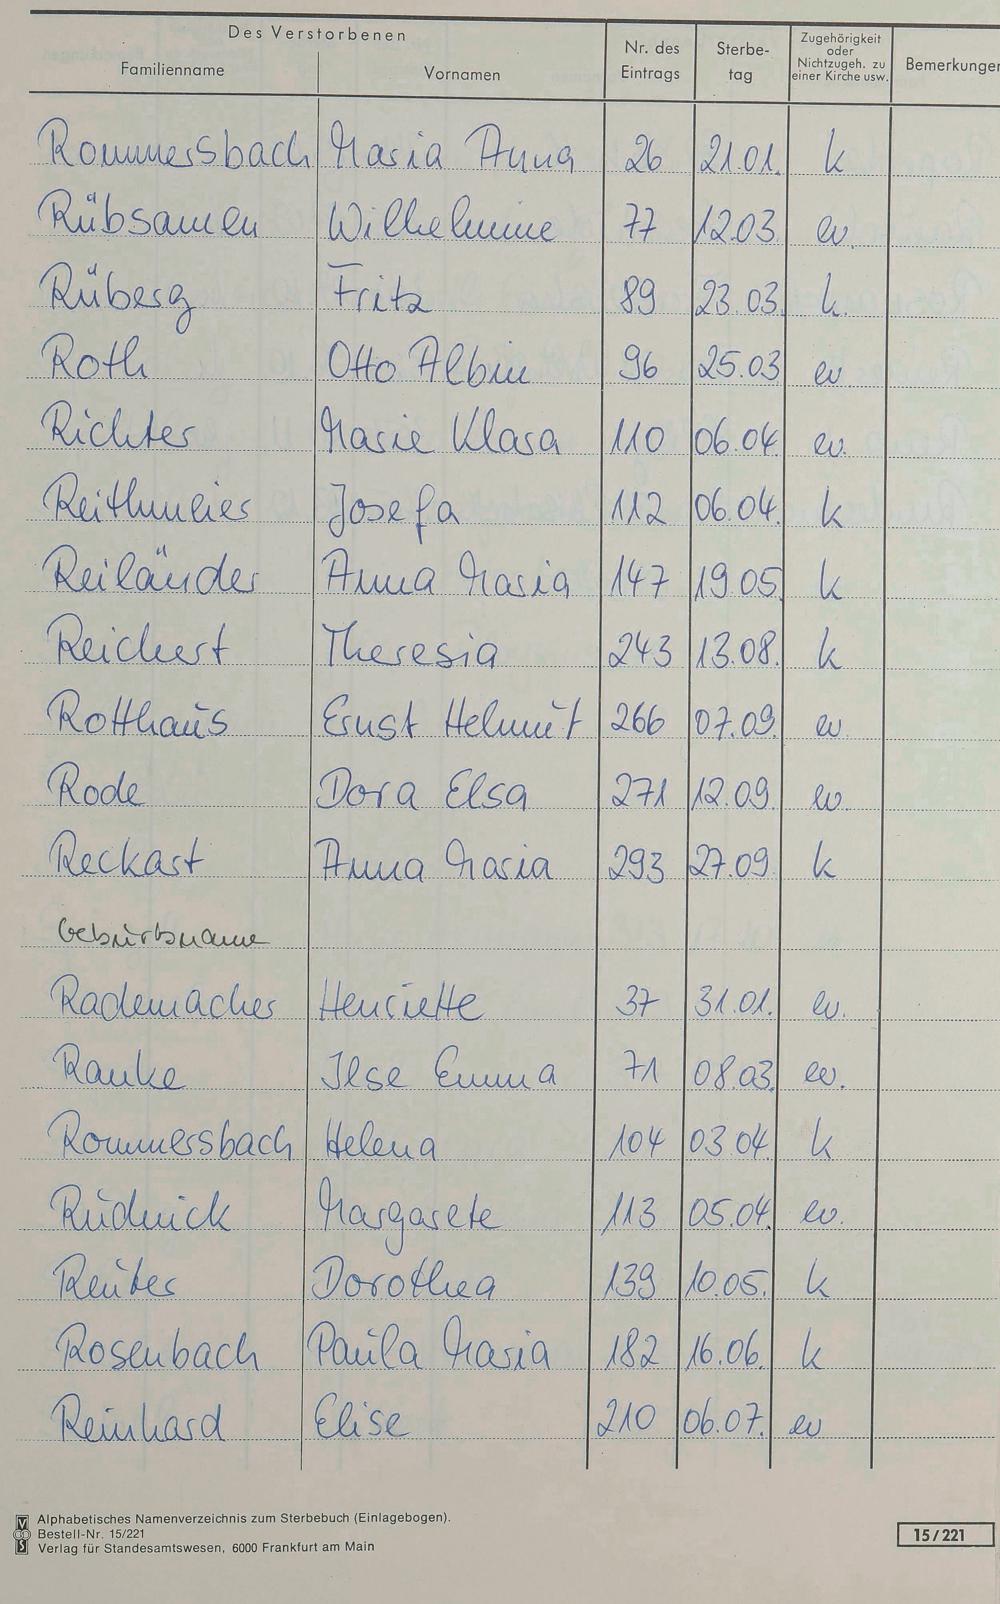 Des Verstorbenen
Familienname Vornamen Nr. des Eintrags Sterbe-tag Zugehörigkeit oder Nichtzugeh. zu einer Kirche usw. Bemerkungen
Rommersbach Maria Anna 26 21.01. k
Rübsamen Wilhelmine 77 12.03. ev.
Rüberg Fritz 89 23.03. k.
Roth Otto Albin 96 25.03 ev
Richter Marie Klara 110 06.04. ev.
Reithmeier Josefa 112 06.04. k
Reiländer Anna Maria 147 19.05. k
Reichert Theresia 243 13.08. k
Rotthaus Ernst Helmut 266 07.09. ev.
Rode Dora Elsa 271 12.09. ev.
Reckart Anna Maria 293 27.09. k
Geburtsname
Rademacher Henriette 37 31.01. ev.
Ranke Ilse Emma 71 08.03. ev.
Rommersbach Helena 104 03.04. k
Rudnick Margarete 113 05.04. ev.
Reuter Dorothea 139 10.05. k
Rosenbach Paula Maria 182 16.06. k
Reinhard Elise 210 06.07. ev
Alphabetisches Namenverzeichnis zum Sterbebuch (Einlagebogen).
Bestell-Nr. 15/221
Verlag für Standesamtswesen, 6000 Frankfurt am Main
15/221